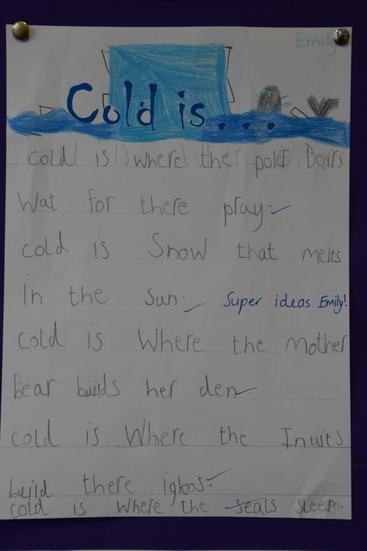 Emily
Cold is...
cold is where the poler Bears
Wat for there pray.
cold is Snow that melts
In the sun. Super ideas Emily!
cold is Where the Mother
Bear builds her den.
cold is Where the Inuits
build there iglos.
cold is where the seals sleep.